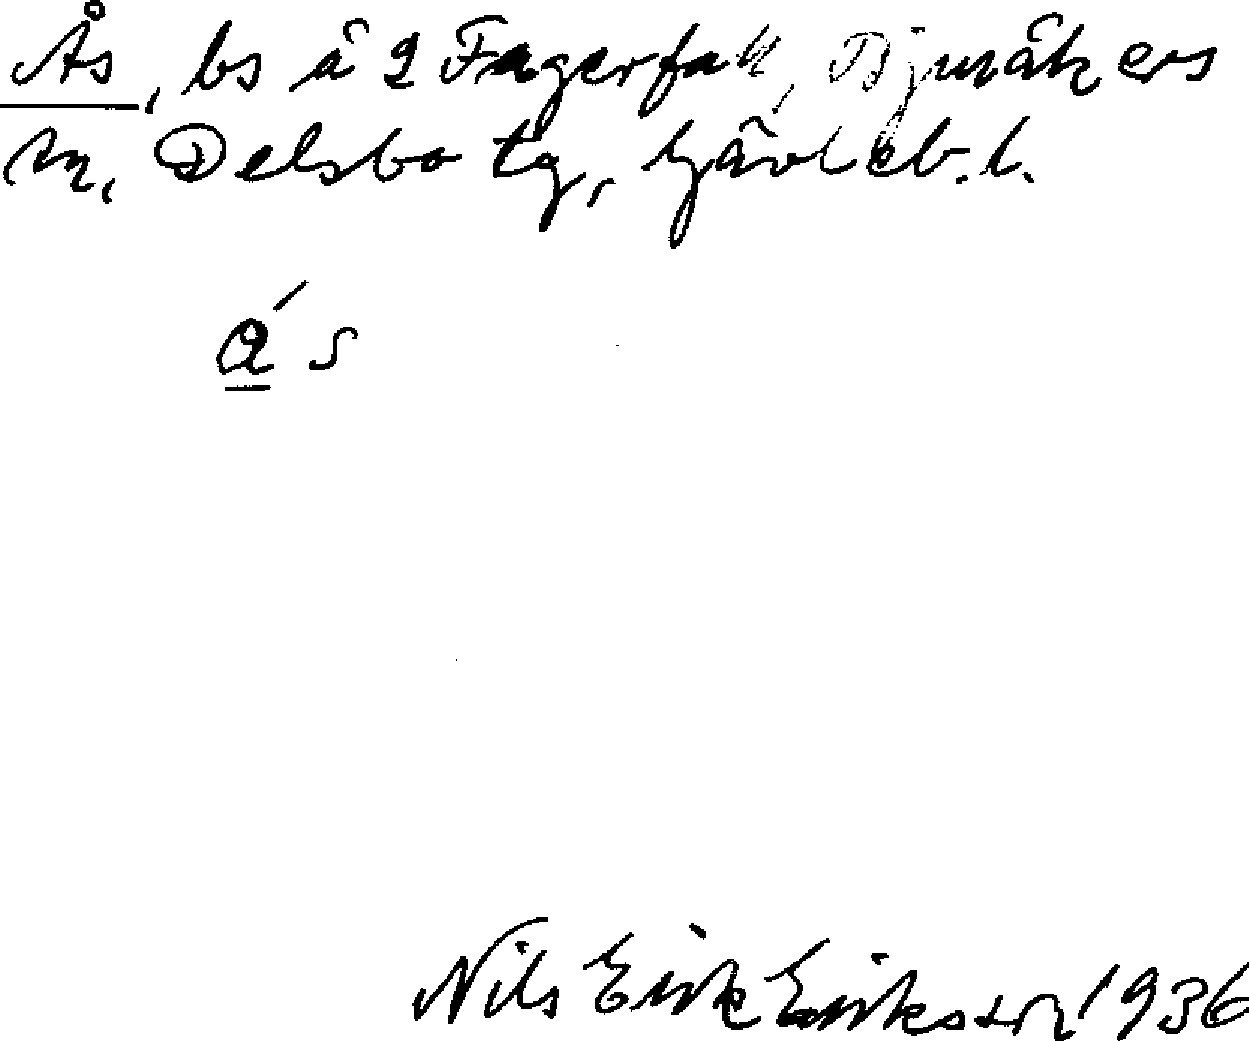 Ås, bs å 2 Fagerfall, Bjuråkers
sn, Delsbo tg, Gävleb. l.
a´ s
Nils Erik Eriksson 1936